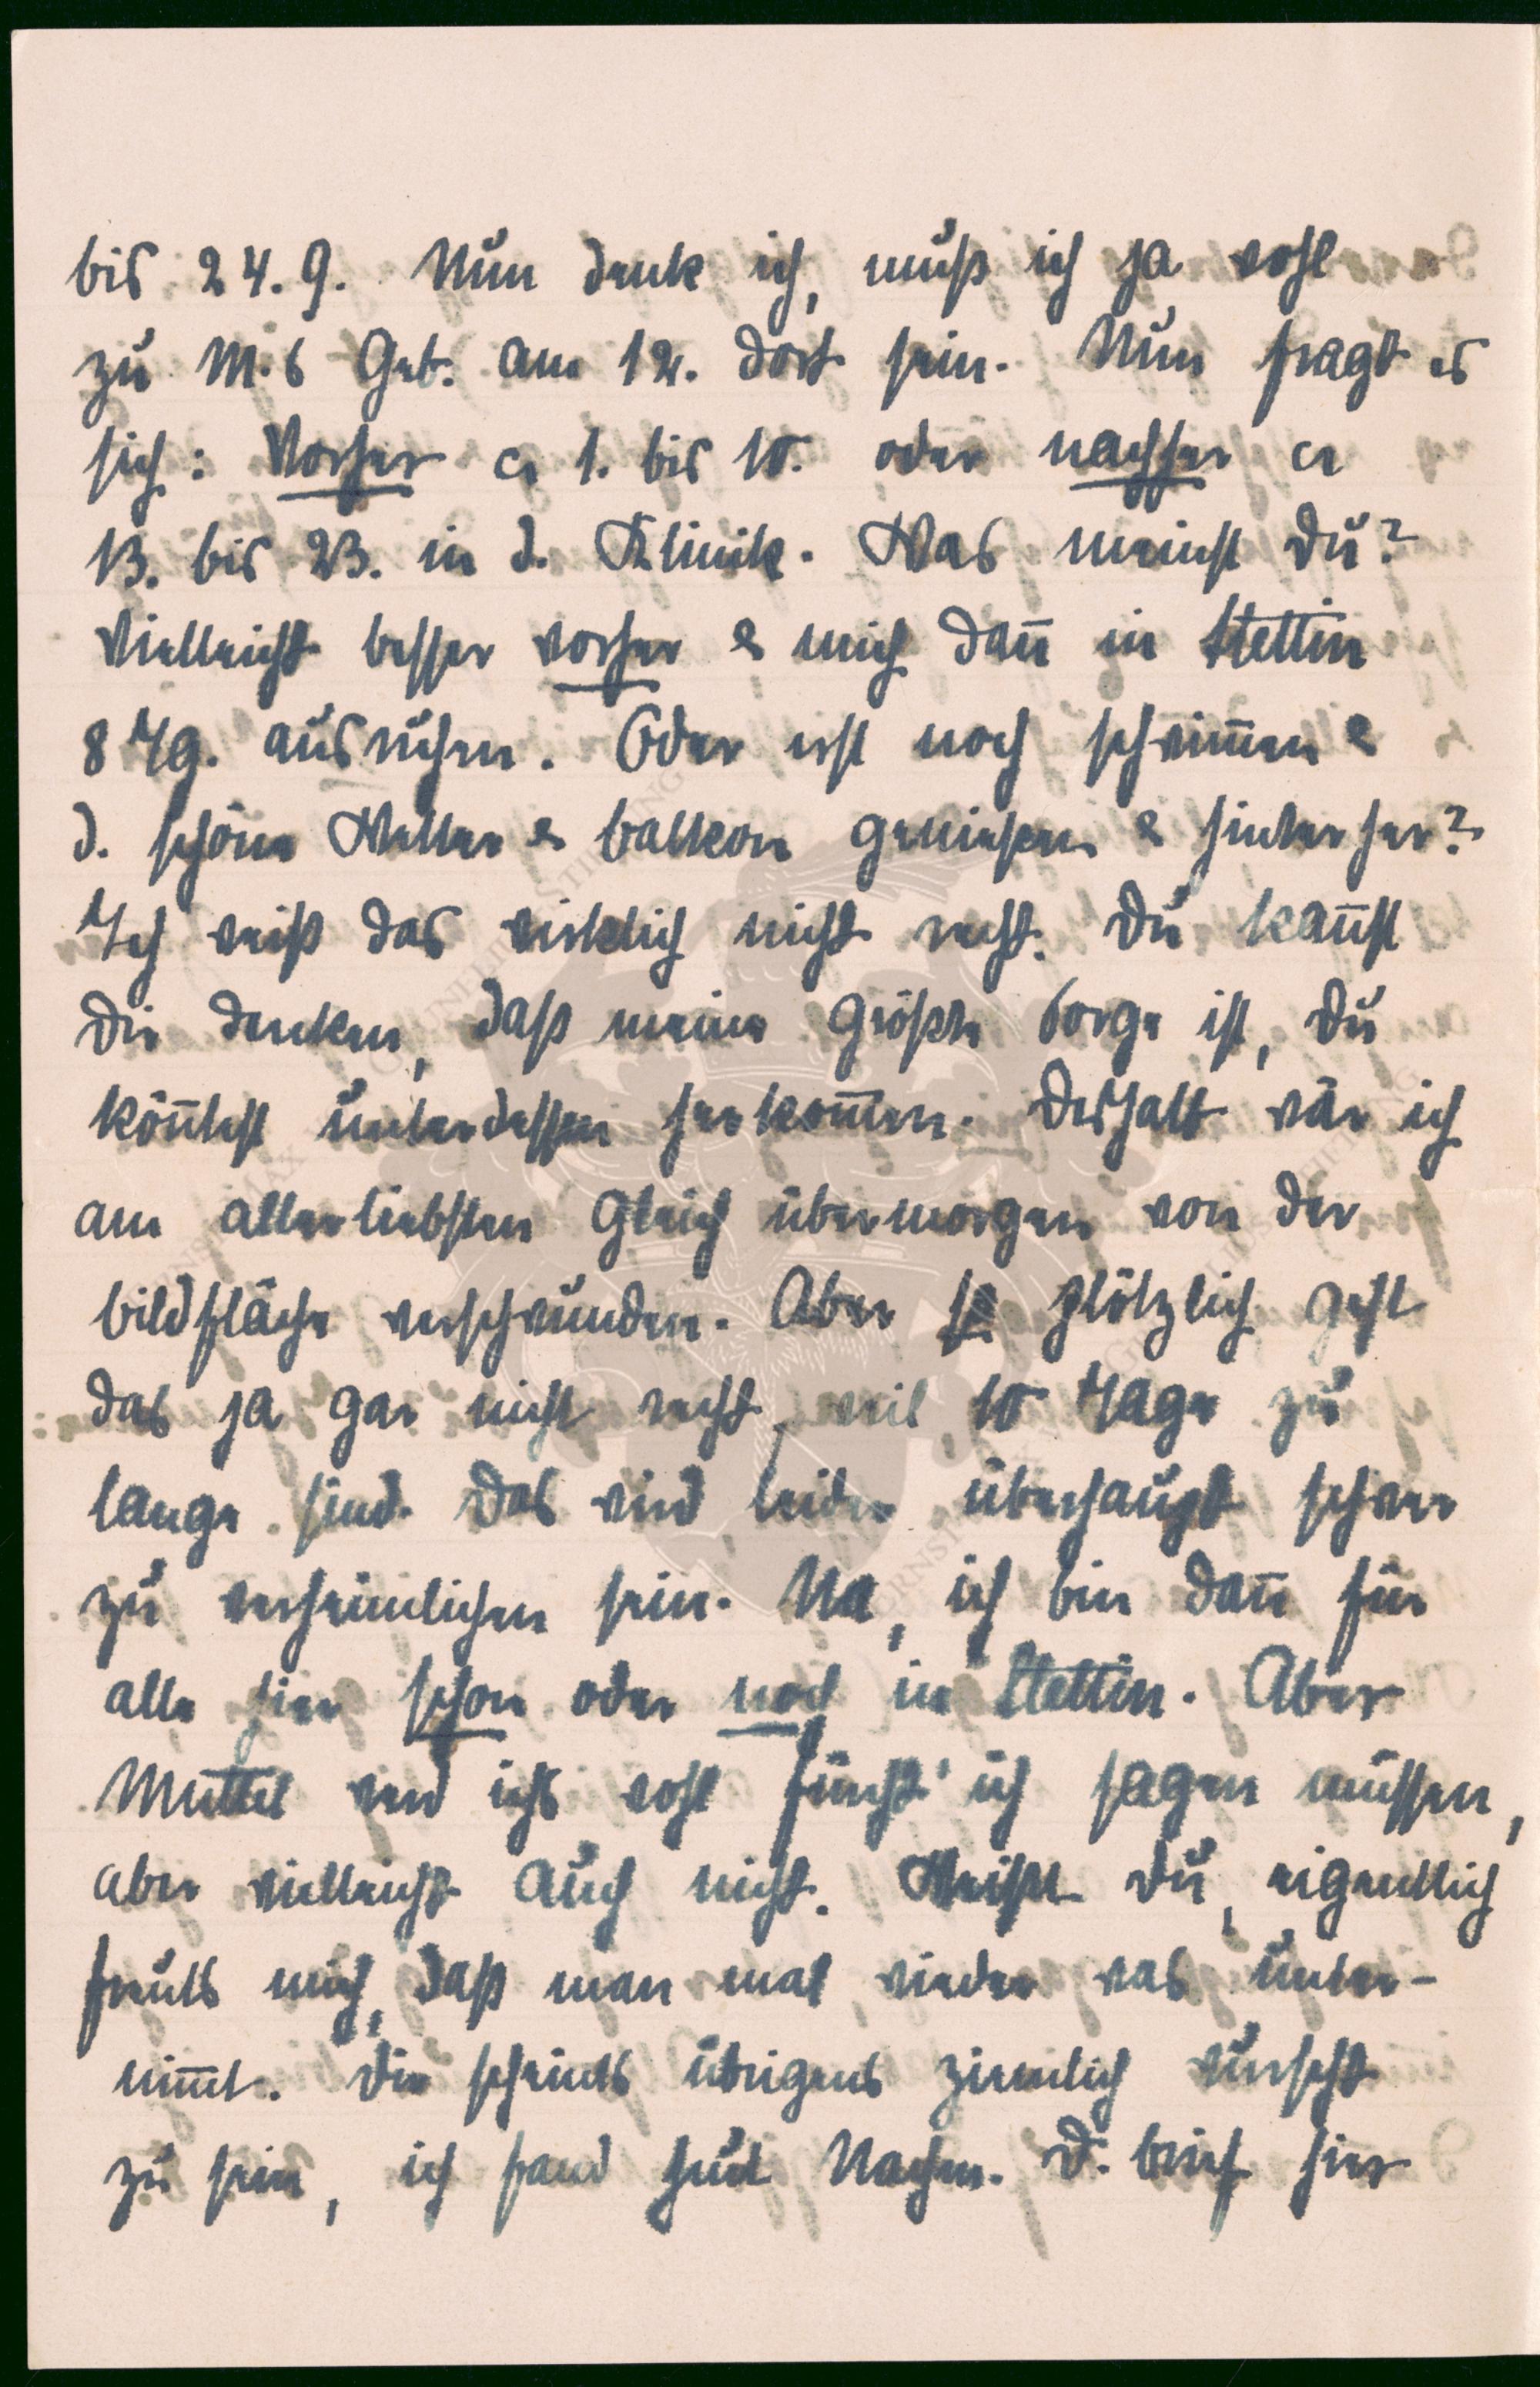 bis 24.9. Nun denk ich, muß ich ja wohl
zu M.s Geb. am 12. dort sein. Nun fragt es
sich: Vorher ca 1. bis 10. oder nachher ca
13. bis 23. in d. Klinik. Was meinst Du?
Vielleicht besser vorher & mich dann in Stettin
8 Tg. ausruhen. Oder erst noch schwimmen &
d. schöne Wetter & Balkon geniesen & hinterher?
Ich weiß das wirklich nicht recht. Du kannst
Dir denken, daß meine größte Sorge ist, Du
könntest unterdessen herkommen. Deshalb wär ich
am allerliebsten gleich übermorgen von der
Bildfläche verschwunden. Aber so plötzlich geht
das ja gar nicht recht, weil 10 Tage zu
lange sind. Das wird leider überhaupt schwer
zu verheimlichen sein. Na, ich bin dann für
alle hier schon oder noch in Stettin. Aber
Muttel werd ichs wohl sagen müssen,
aber vielleicht auch nicht. Weißt Du, eigentlich
freuts mich, daß man mal wieder was unter-
nimmt. Dir scheints übrigens ziemlich wurscht
zu sein, ich fand heut Nachm. D. Brief hier